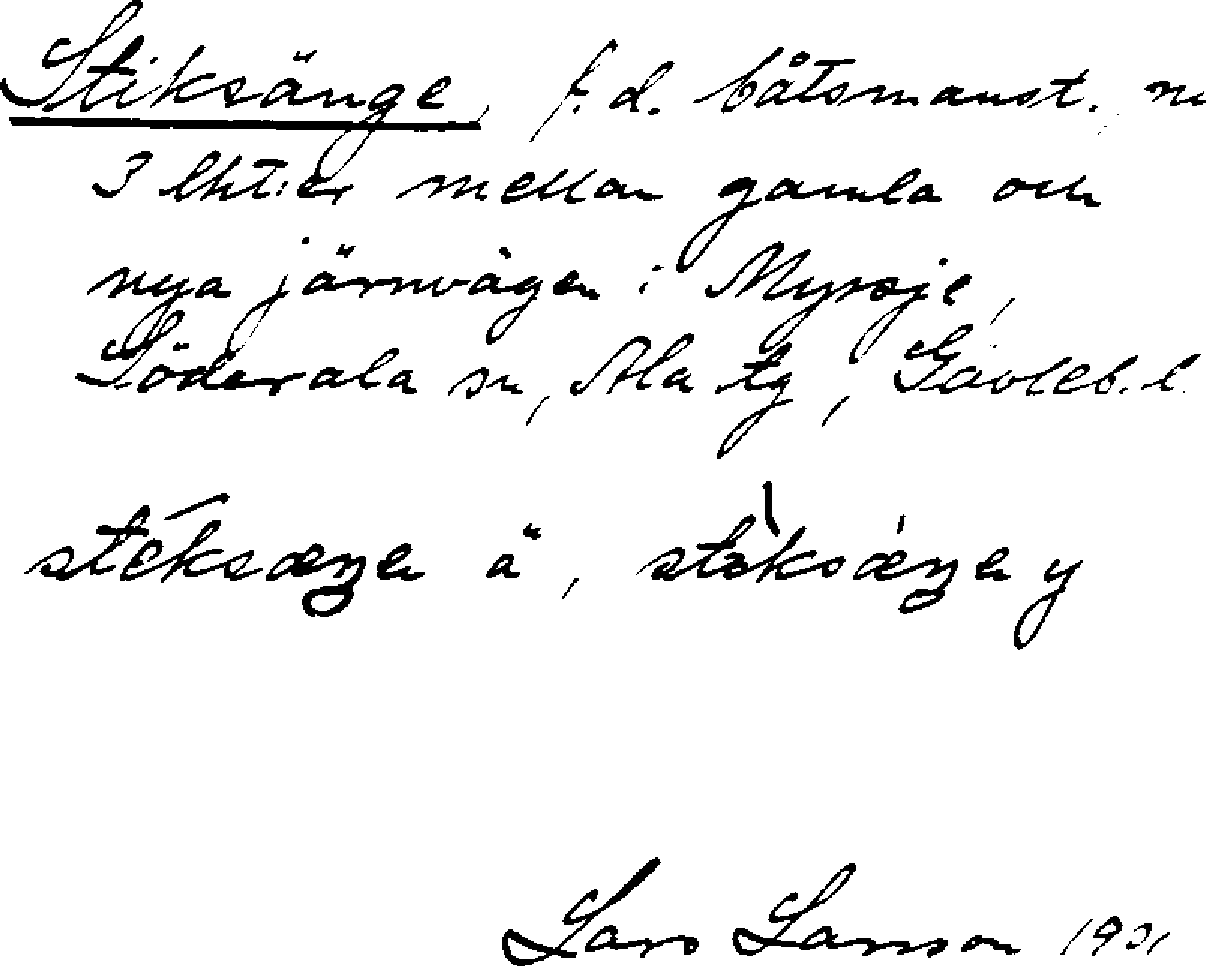 Stiksänge, f.d. båtsmanst. nu
3 lht:er mellan gamla och
nya järnvägen i Myrsje,
Söderala sn, Ala tg, Gävleb. l.
stéksæŋen ä, stèksæŋen y
Lars Larsson